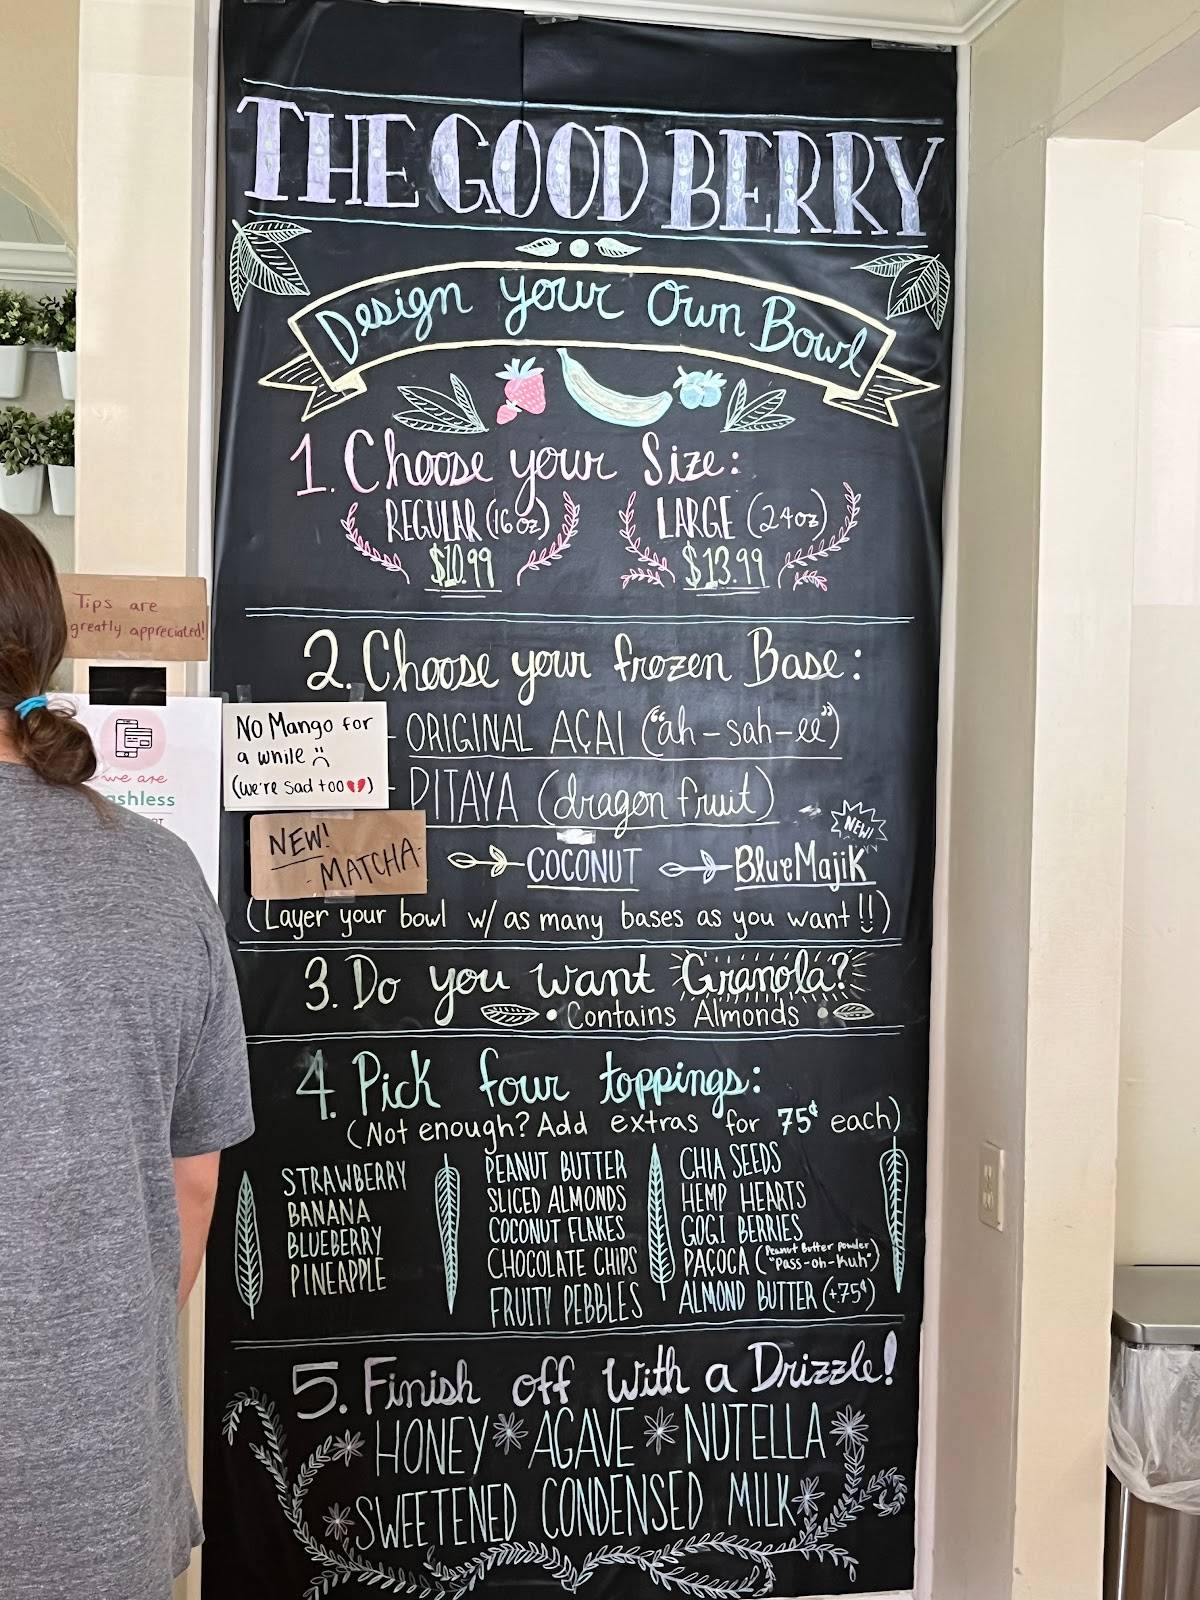 THE GOOD BERRY
Design your Own Bowl
1. Choose your Size:
REGULAR (16 oz)
$10.99
LARGE (24oz)
$13.99
Tips are
greatly appreciated!
we are
ashless
2. Choose your frozen Base:
No Mango for
a while
(we're sad too)
- ORIGINAL AÇAI ("ah-sah-ee")
- PITAYA (dragon fruit)
NEW!
MATCHA
COCONUT
NEW!
BlueMajik
(Layer your bowl w/ as many bases as you want!!)
3. Do you want Granola?
• Contains Almonds •
4. Pick four toppings:
(Not enough? Add extras for 75¢ each)
STRAWBERRY
BANANA
BLUEBERRY
PINEAPPLE
PEANUT BUTTER
SLICED ALMONDS
COCONUT FLAKES
CHOCOLATE CHIPS
FRUITY PEBBLES
CHIA SEEDS
HEMP HEARTS
GOGI BERRIES
PAÇOCA (Peanut Butter powder "Pass-oh-kuh")
ALMOND BUTTER (+.75¢)
5. Finish off with a Drizzle!
HONEY * AGAVE * NUTELLA *
* SWEETENED CONDENSED MILK *